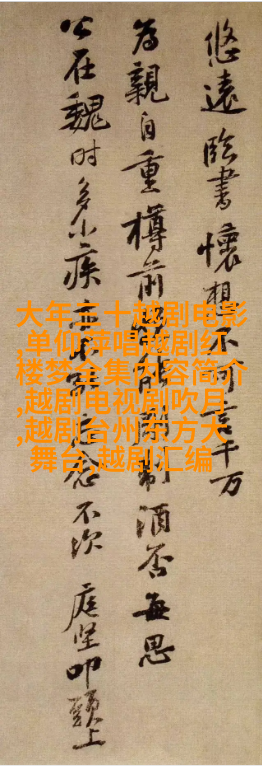 悠遠臨書懷想不可言千万
為親自重樽前能剛制酒否每思
公在魏时多小疾亦念不次 庭坚叩頭上
大年三十越剧电影
,单仰萍唱越剧红
楼梦全集内容简介
,越剧电视剧吹月
,越剧台州东方大
舞台,越剧汇编